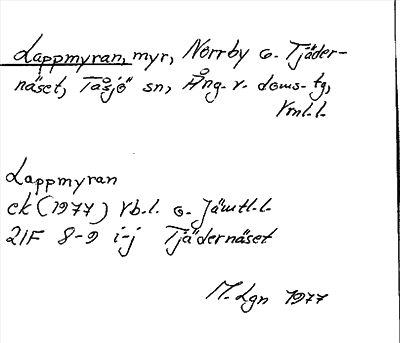 Lappmyran, myr, Norrby o. Tjäder-
näset, Tåsjö sn, Ång. v. doms. tg,
Vnl.l.
Lappmyran
ek (1977) Vb.l. o. Jämtl.l.
21F 8-9 i-j Tjädernäset
M. Lgn 1977